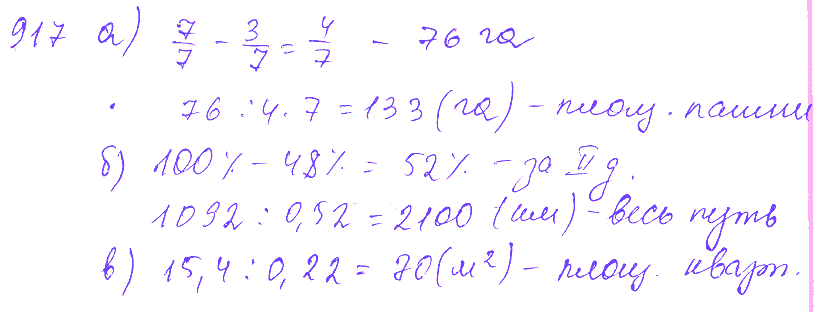 917 а) 7/7 - 3/7 = 4/7 - 76 га
76 : 4 · 7 = 133 (га) - площ. пашни
б) 100% - 48% = 52% - за II д.
1092 : 0,52 = 2100 (км) - весь путь
в) 15,4 : 0,22 = 70 (м²) - площ. кварт.